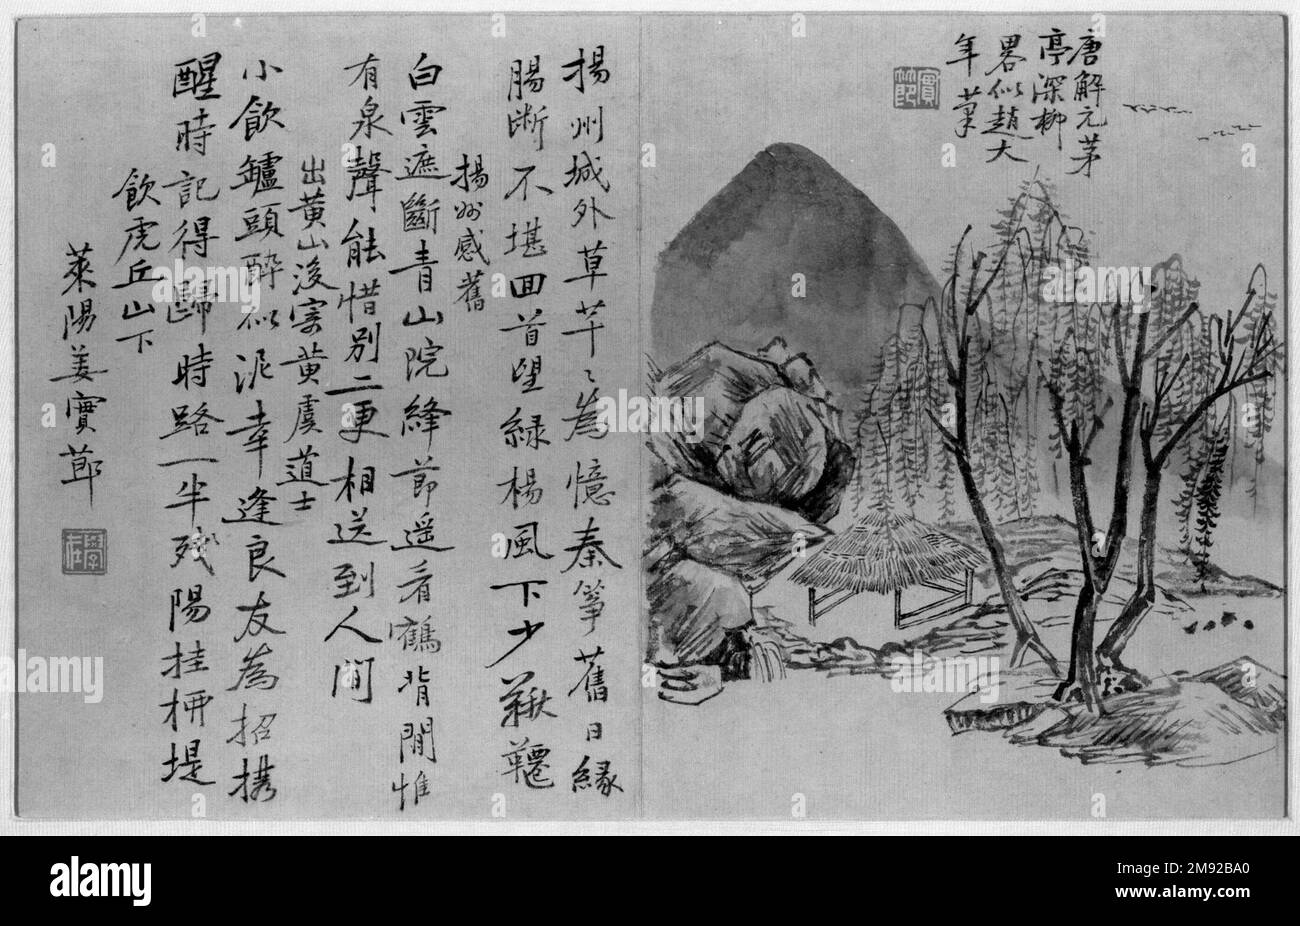 唐解元茅
亭深柳
畧似趙大
年筆
實節
揚州城外草芊〻為憶秦箏舊日緣
腸斷不堪回首望綠楊風下少鞦韆
揚州感舊
白雲遮斷青山院絳節遥看鶴背閒惟
有泉聲能惜别二更相送到人間
出黄山後寄黄虞道士
小飲罏頭醉似泥幸逢良友為招攜
醒時記得歸時路一半殘陽挂柳堤
飲虎丘山下
萊陽姜實莭
學在
alamy
Image ID: 2M92BA0
www.alamy.com